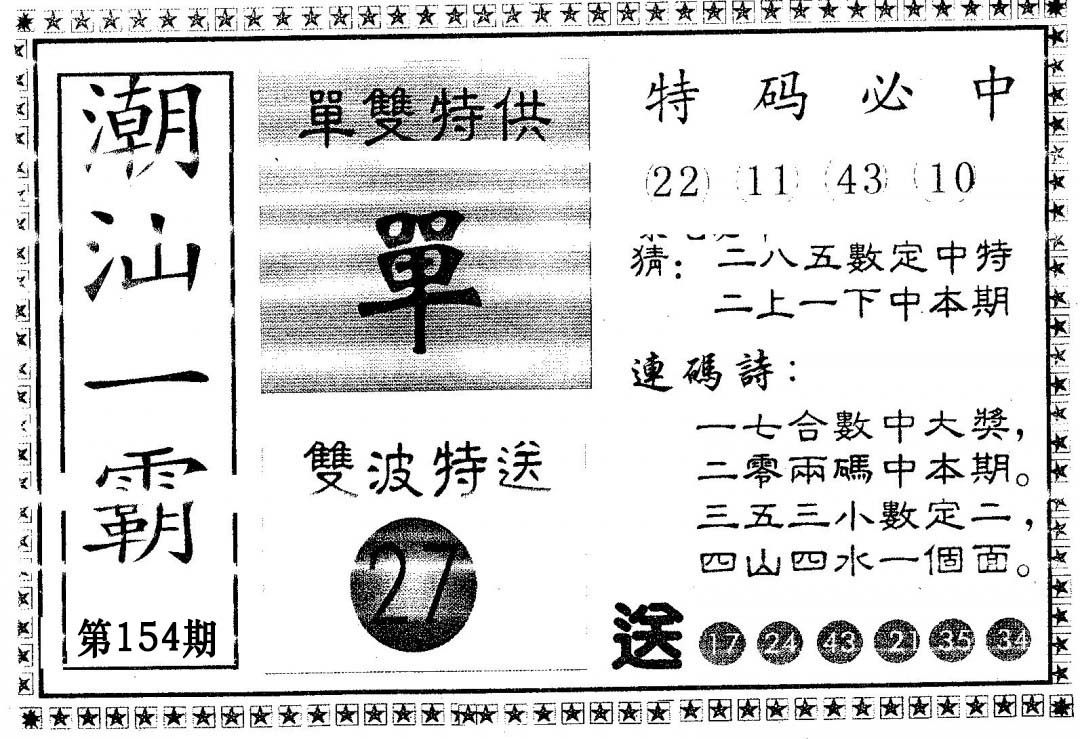 潮汕一霸
第154期
單雙特供
單
雙波特送
27
特码必中
(22) (11) (43) (10)
猜: 二八五數定中特
二上一下中本期
連碼詩:
一七合數中大獎,
二零兩碼中本期。
三五三小數定二,
四山四水一個面。
送 17 24 43 21 35 34